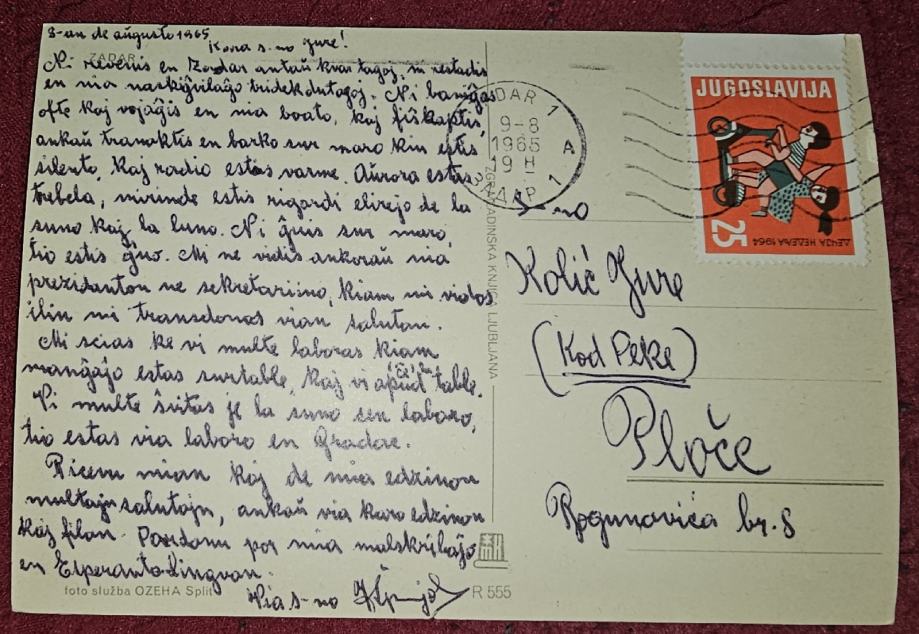 8-an de aŭgusto 1965
Kara s-no Jure!
ZADAR
Ni revenis en Zadar antaŭ kvar tagoj, ni restadis
en nia naskiĝvilaĝo tridekdutagoj. Ni baniĝas
ofte kaj vojaĝis en nia boato, kaj fiŝkaptis,
ankaŭ tranoktis en barko sur maro kiu estis
silenta, kaj radio estas varme. Aŭrora estas
trebela, mirinde estis rigardi elirejo de la
suno kaj la luno. Ni ĝuis sur maro,
tio estis ĝuo. Mi ne vidis ankoraŭ nia
prezidanton ne sekretariino, kiam mi vidos
ilin mi transdonas vian saluton.
Mi scias ke vi multe laboras kiam
manĝaĵo estas surtable, kaj vi apud table.
Vi multe ŝvitas je la suno sen laboro,
tio estas via laboro en Gradac.
Ricevu mian kaj de mia edzinon
multajn salutojn, ankaŭ via kara edzinon
kaj filon. Pardonu por mia malskribaĵo
en Esperanto lingvon.
Via s-no
foto služba OZEHA Split
R 555
LJUBLJANA
ZADAR 1
9-8
1965
19 H
A
ЗАДАР 1
JUGOSLAVIJA
25
ДЕЧЈА НЕДЕЉА 1964
S-no
Kolić Jure
(Kod Peke)
Ploče
br. 8